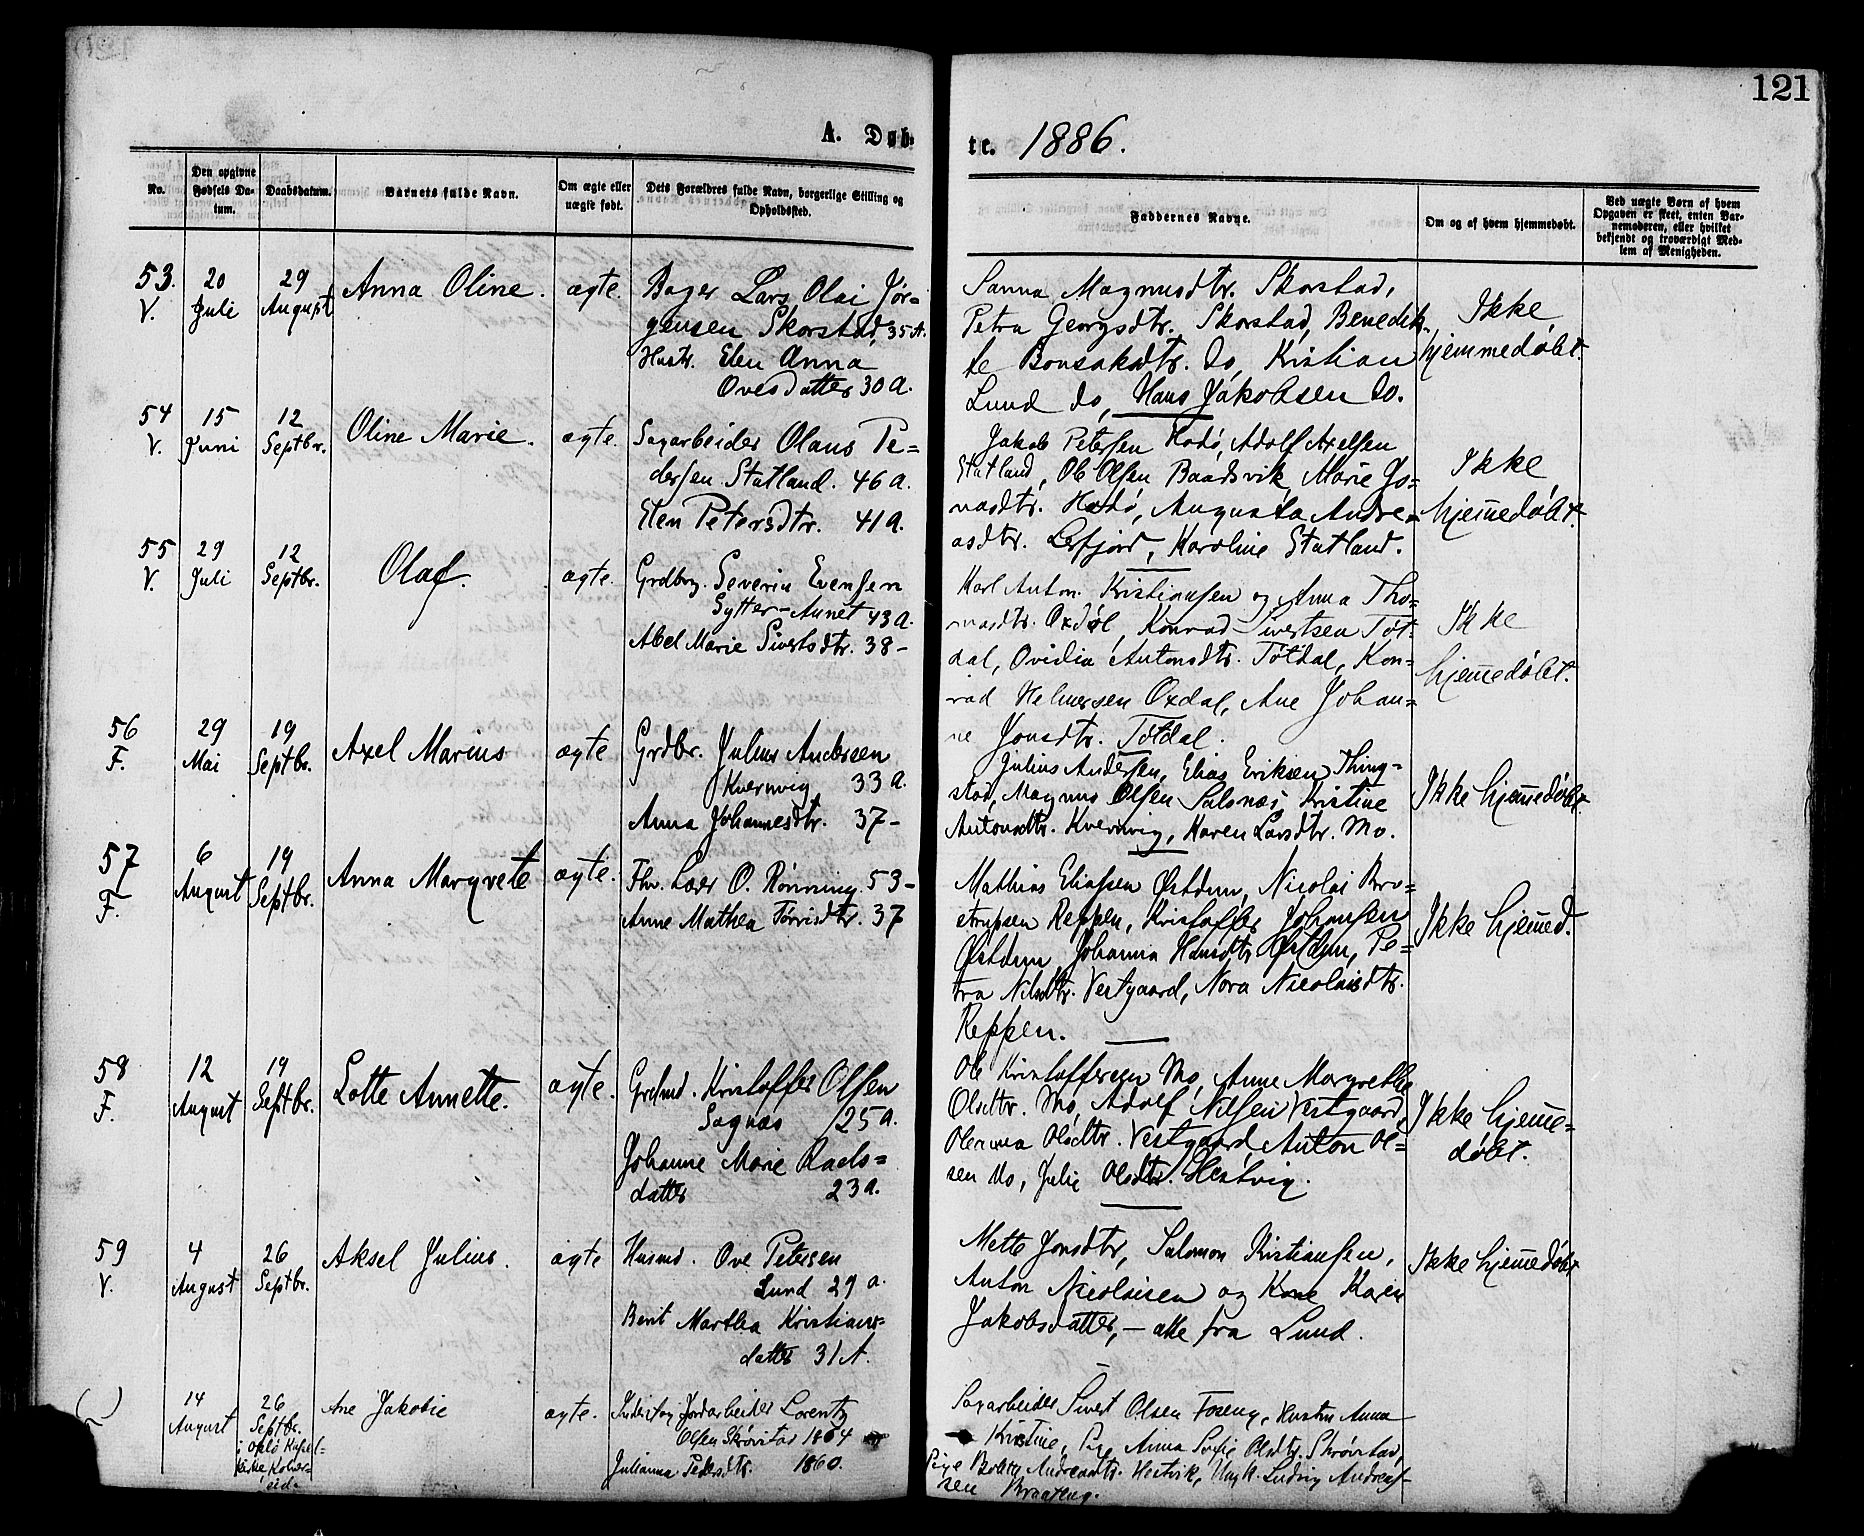 121
A. Døb-
te. 1886.
No.
Den opgivne Fødsels Da-
tum.
Daabsdatum.
Barnets fulde Navn.
Om ægte eller
uægte født.
Dets Forældres fulde Navn, borgerlige Stilling og
Opholdssted.
Faddernes Navne.
Om og af hvem hjemmedøbt.
Ved uægte Børn af hvem
Opgaven er skeet, enten Bar-
nemoderen, eller hvilket
bekjendt og troværdigt Med-
lem af Menigheden.
53.
V.
20
Juli
29
August
Anna Oline.
ægte.
Bager Lars Olai Jør-
gensen Skorstad, 35 A.
Hustr. Elen Anna
Ovesdatter 30 A.
Sanna Magnusdtr. Skorstad,
Petra Georgsdtr. Skorstad, Benedik-
te Bonsaksdtr. do, Kristian
Lund do, Hans Jakobsen do.
Ikke
hjemmedøbt.
54
V.
15
Juni
12
Septbr.
Oline Marie.
ægte.
Sagarbeider Olaus Pe=
dersen Statland. 46 A.
Elen Petersdtr. 41 A.
Jakob Petersen Hodø, Adolf Axelsen
Statland, Ole Olsen Baadsvik, Marie Jo=
nasdtr. Hodø, Augusta Andre=
asdtr. Lerfjord, Karoline Statland.
Ikke
hjem̅edøbt.
55
V.
29
Juli
12
Septbr.
Olaf.
ægte.
Grdbrg. Severin Evensen
Sytter-Aunet 43 A.
Abel Marie Sivertsdtr. 38 -
Karl Anton Kristiansen og Anna Tho=
masdtr. Oxdøl, Konrad Sivertsen Tøt-
dal, Ovidia Antonsdtr. Tøtdal, Kon=
rad Helmersen Oxdal, Ane Johan=
ne Jonsdtr. Tøtdal.
Ikke
hjem̅edøbt.
56
F.
29
Mai
19
Septbr.
Axel Marius
ægte
Grdbr. Julius Andersen
Kvernvig 33 A.
Anna Johannesdtr. 37 -
Julius Andersen, Elias Eriksen Thing=
stad, Magnus Olsen Salsnæs, Kristine
Antonsdtr. Kvernvig, Karen Larsdtr. Mo.
Ikke hjem̅edøbt
57
F.
6
August
19
Septbr.
Anna Margrete
ægte.
Fhv. Lærer O. Rønning 53 -
Anne Mathea Tørrisdtr. 37
Mathias Eliassen Østdun, Nicolai Bro=
strupsen Reppen, Kristoffer Johansen
Østdun, Johanna Hansdtr. Østdun, Pe=
tra Nilsdtr. Vestgaard, Nora Nicolaisdtr.
Reppen.
Ikke hjem̅ed.
58
F.
12
August
19
Septbr.
Lotte Annette.
ægte.
Grdmd. Kristoffer Olsen
Sagnæs 25 A.
Johanne Marie Karls=
datter 23 A.
Ole Kristoffersen Mo, Anne Margrethe
Olsdtr. Mo, Adolf Nilsen Vestgaard,
Olerina Olsdtr. Vestgaard, Anton Ol=
sen Mo, Julie Olsdtr. Hestvig.
Ikke hjem̅e=
døbt.
59
V.
4
August
26
Septbr.
Aksel Julius.
ægte
Husmd. Ove Petersen
Lund 29 A.
Berit Martha Kristians=
datter 31 A.
Mette Jonsdtr, Salomon Kristiansen,
Anton Nicolaisen og Kone Karen
Jakobsdatter, - alle fra Lund.
Ikke hjem̅edøbt
14
August
26
Septbr.
i Oplø Kapel-
kirke, Kolver-
eid.
Ane Jakobie
ægte.
Inderst og Jordarbeider Lorentz
Olsen Skrøvstad 1864
Julianna Pedersdtr. 1860.
Sagarbeider Sivert Olsen Foseng, Hustru Anna
Kristine, Pige Anna Sofie Olsdtr. Skrøvstad,
Pige Andreasdtr. Hestvik, Ungk. Ludvig Andreas-
sen Braateng.